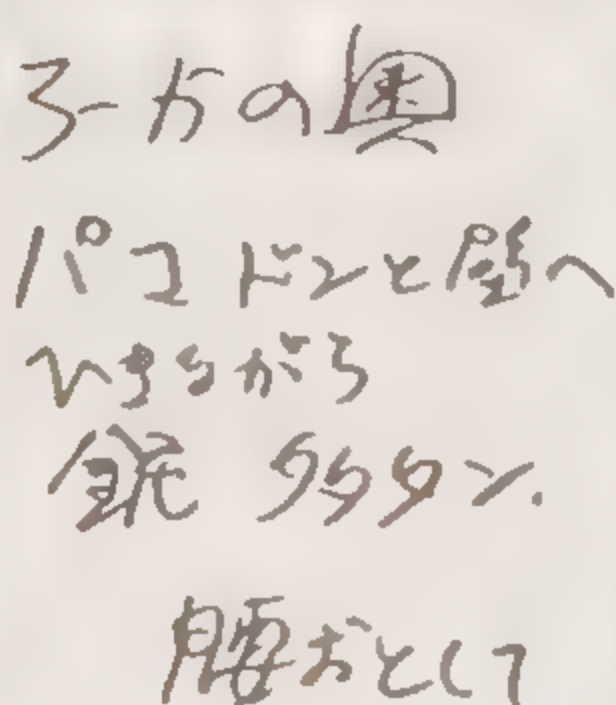 ろーかの奥
パコドンと壁へ
ひきながら
銃 タタタン.
腰おとして